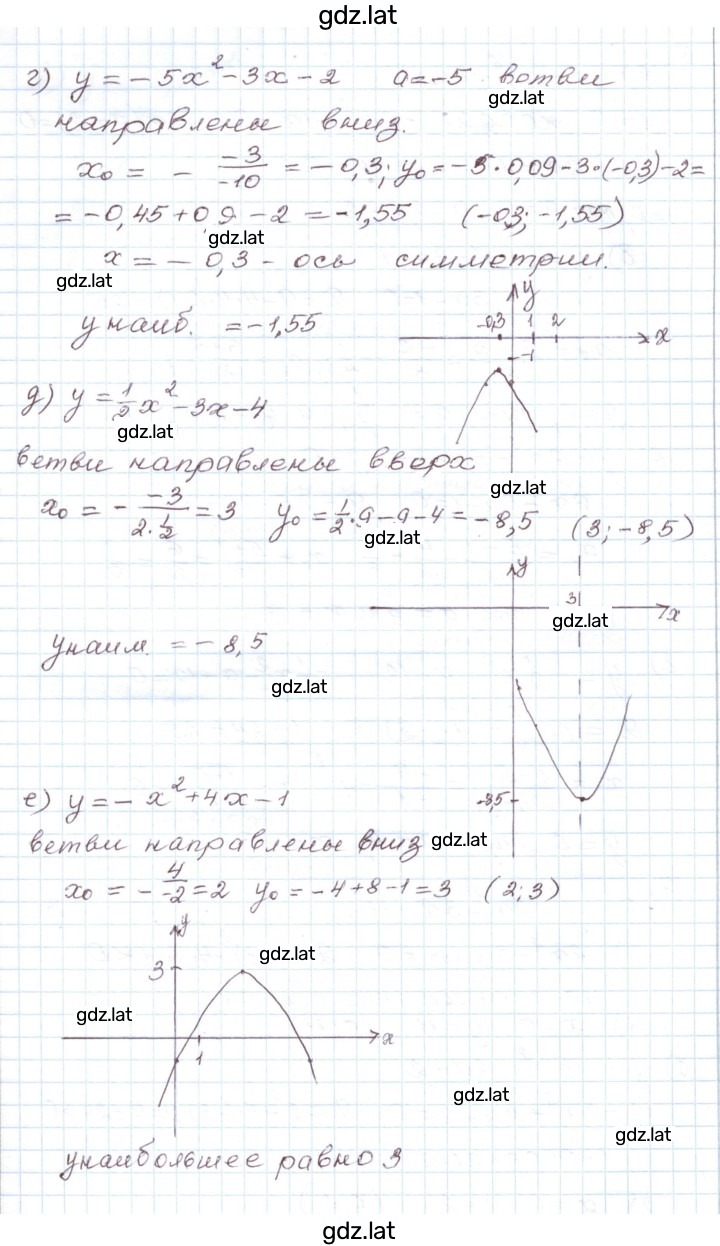 gdz.lat
г) y = -5x² - 3x - 2 a = -5 ветви
gdz.lat
направлены вниз.
x₀ = - -3/-10 = -0,3; y₀ = -5·0,09 - 3·(-0,3) - 2 =
= -0,45 + 0,9 - 2 = -1,55 (-0,3; -1,55)
gdz.lat
x = -0,3 - ось симметрии.
gdz.lat
y
y наиб. = -1,55
-0,3 1 2 x
-1
д) y = 1/2 x² - 3x - 4
gdz.lat
ветви направлены вверх
gdz.lat
x₀ = - -3/2·1/2 = 3 y₀ = 1/2·9 - 9 - 4 = -8,5 (3; -8,5)
gdz.lat
y
3 x
gdz.lat
yнаим. = -8,5
gdz.lat
-8,5
е) y = -x² + 4x - 1
ветви направлены вниз gdz.lat
x₀ = - 4/-2 = 2 y₀ = -4 + 8 - 1 = 3 (2; 3)
y
gdz.lat
3
gdz.lat
x
1
gdz.lat
gdz.lat
yнаибольшее равно 3
gdz.lat